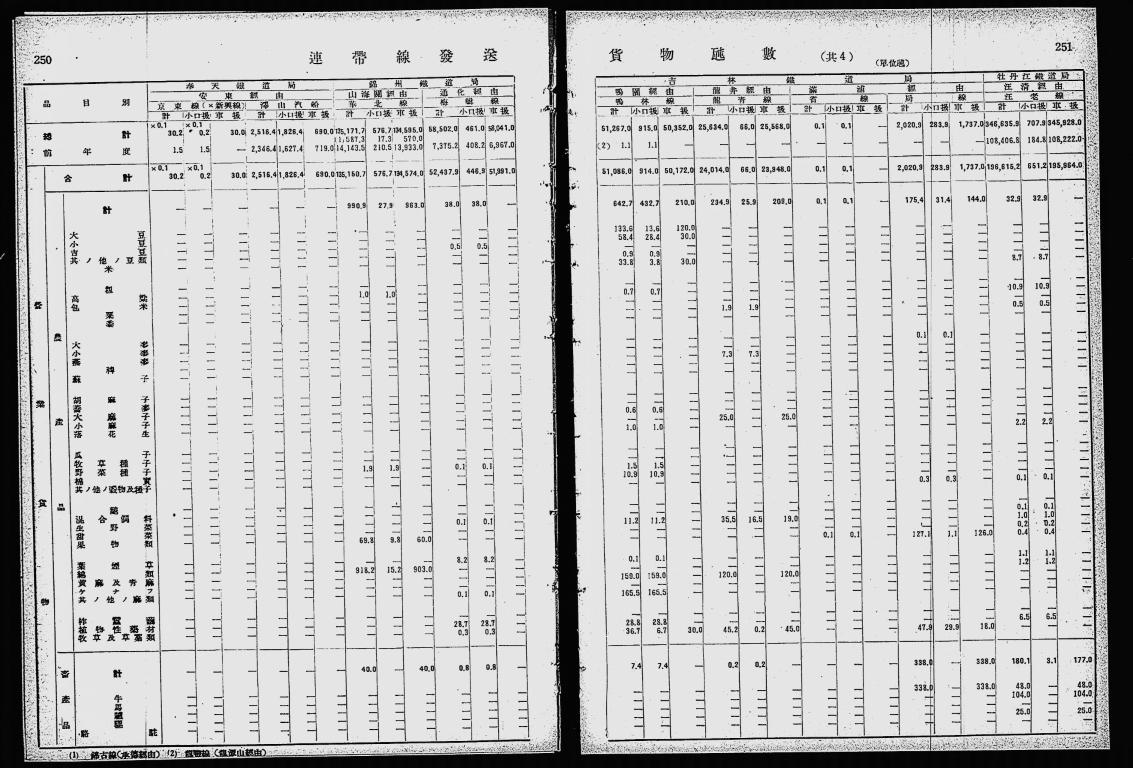 250
連帶線發送
奉天鐵道局 錦州鐵道局
安東經由 山海關經由 通化經由
品目別 京東線(×新興線) 滯山汽船 華北線 梅輯線
計 小口扱 車扱 計 小口扱 車扱 計 小口扱 車扱 計 小口扱 車扱
總計 ×0.1 30.2 ×0.1 0.2 30.0 2,516.4 1,826.4 690.0 135,171.7 576.7 134,595.0 58,502.0 461.0 58,041.0
11,587.3 17.3 570.0
前年度 1.5 1.5 — 2,346.4 1,627.4 719.0 14,143.5 210.5 13,933.0 7,375.2 408.2 6,967.0
合計 ×0.1 30.2 ×0.1 0.2 30.0 2,516.4 1,826.4 690.0 135,150.7 576.7 134,574.0 52,437.9 446.9 51,991.0
計 — — — — — — 990.9 27.9 963.0 38.0 38.0 —
大豆
小豆 0.5 0.5
吉豆
其ノ他ノ豆類
米
粗
高粱 1.0 1.0
包米
粟
黍
大麥
小麥
蕎麥
稗
蘇子
胡麻子
大麻子
小麻子
落花生
瓜子
牧草種子
野菜種子 1.9 1.9 — 0.1 0.1 —
棉實
其ノ他ノ穀物及種子
混合飼料
生野菜 0.1 0.1
甜菜
果物類 69.8 9.8 60.0
葉煙草 8.2 8.2
綿類 918.2 15.2 903.0
黃麻及靑麻
ケナフ
其ノ他ノ麻類 0.1 0.1
柞蠶繭
植物性藥材 28.7 28.7
牧草及草藁類 0.3 0.3
計 40.0 — 40.0 0.8 0.8 —
牛
馬
驢
騾
營業貨物
農産品
畜産品
略註
(2)
251
貨物瓲數 (共4) (單位瓲)
吉林鐵道局 牡丹江鐵道局
鴨園經由 龍井經由 滿浦經由 汪淸經由
鴨林線 龍靑線 省線 局線 汪老線
計 小口扱 車扱 計 小口扱 車扱 計 小口扱 車扱 計 小口扱 車扱 計 小口扱 車扱
51,267.0 915.0 50,352.0 25,634.0 66.0 25,568.0 0.1 0.1 — 2,020.9 283.9 1,737.0 346,635.9 707.9 345,928.0
(2) 1.1 1.1 — — — — — — — — — — 108,406.8 184.8 108,222.0
51,086.0 914.0 50,172.0 24,014.0 66.0 23,948.0 0.1 0.1 — 2,020.9 283.9 1,737.0 196,615.2 651.2 195,964.0
642.7 432.7 210.0 234.9 25.9 209.0 0.1 0.1 — 175.4 31.4 144.0 32.9 32.9 —
133.6 13.6 120.0
58.4 28.4 30.0
0.9 0.9
33.8 3.8 30.0 8.7 8.7
0.7 0.7 10.9 10.9
1.9 1.9 0.5 0.5
0.1 0.1
7.3 7.3
0.6 0.6
25.0 25.0
1.0 1.0 2.2 2.2
1.5 1.5
10.9 10.9
0.3 0.3 0.1 0.1
0.1 0.1
11.2 11.2 35.5 16.5 19.0 1.0 1.0
0.2 0.2
0.1 0.1 127.1 1.1 126.0 0.4 0.4
0.1 0.1 1.1 1.1
1.2 1.2
159.0 159.0 120.0 120.0
165.5 165.5
28.8 28.8 6.5 6.5
36.7 6.7 30.0 45.2 0.2 45.0 47.9 29.9 18.0
7.4 7.4 — 0.2 0.2 — — — — 338.0 — 338.0 180.1 3.1 177.0
338.0 — 338.0 48.0 — 48.0
104.0 — 104.0
25.0 — 25.0